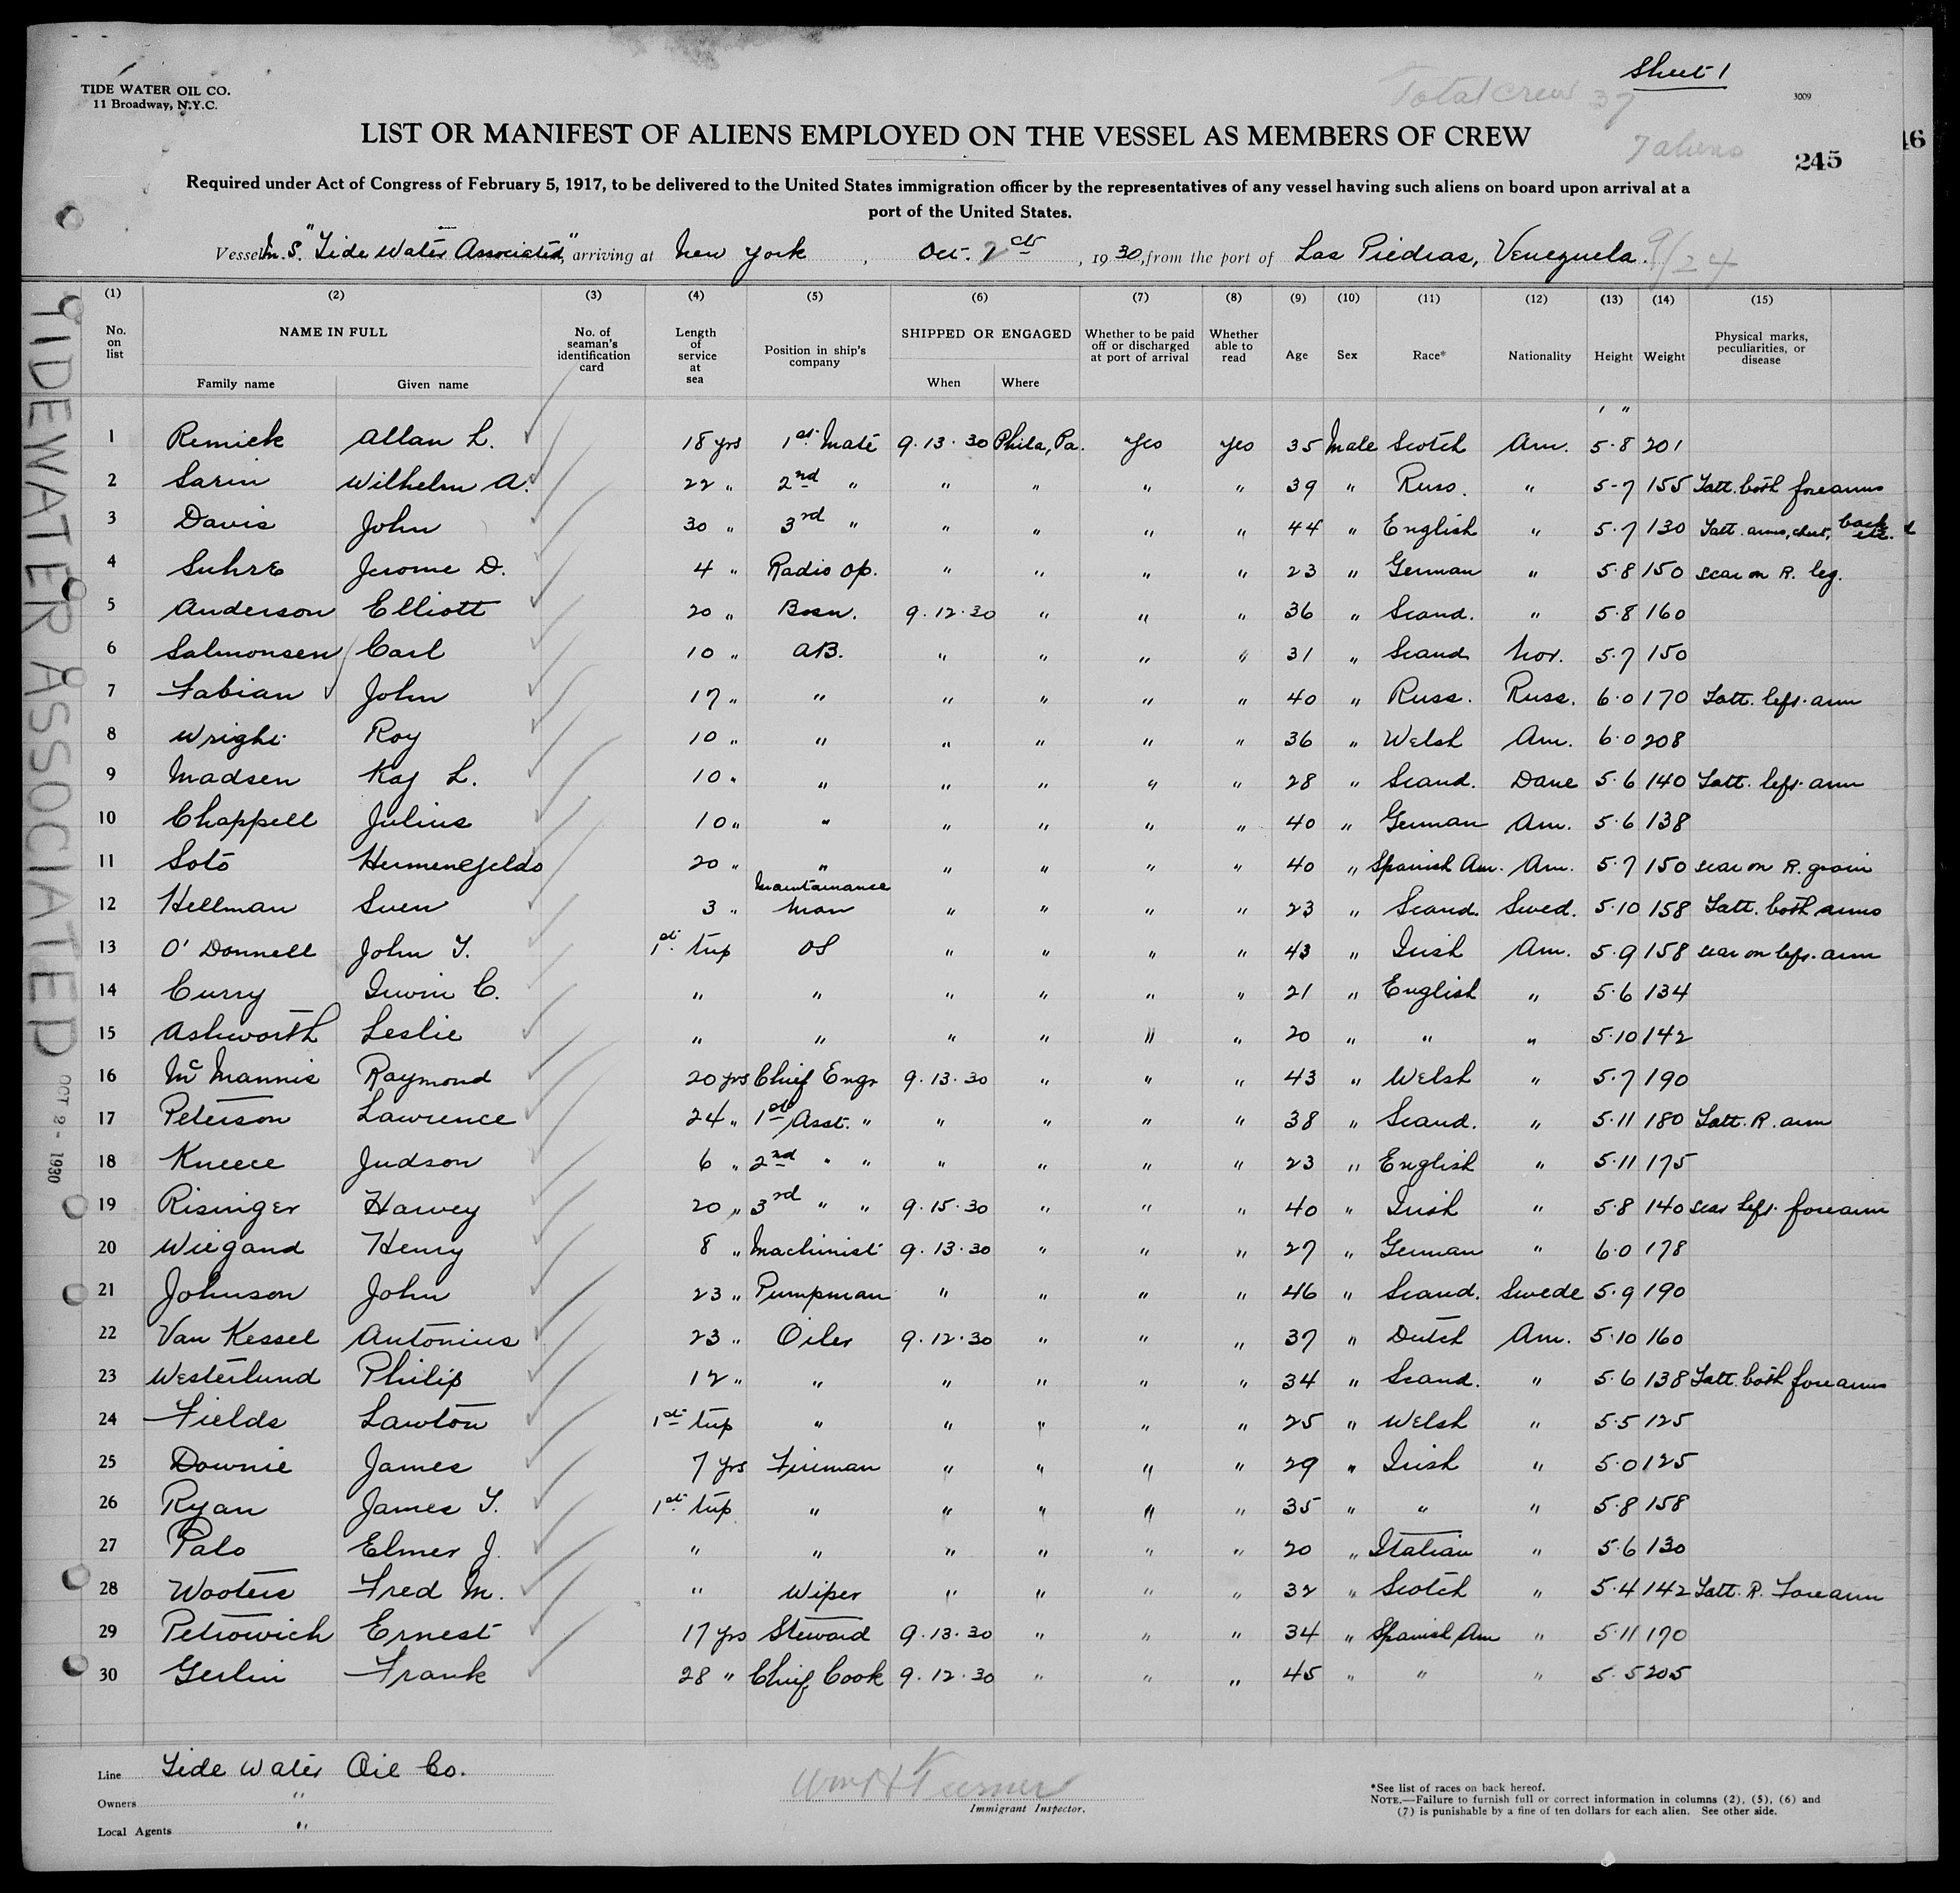 Sheet 1
TIDE WATER OIL CO.
11 Broadway, N.Y.C.
Total crew 37
3009
LIST OR MANIFEST OF ALIENS EMPLOYED ON THE VESSEL AS MEMBERS OF CREW
7 aliens
245
46
Required under Act of Congress of February 5, 1917, to be delivered to the United States immigration officer by the representatives of any vessel having such aliens on board upon arrival at a
port of the United States.
Vessel M.S. "Tide Water Associated", arriving at New York, Oct. 2nd, 1930, from the port of Las Piedras, Venezuela. 9/24
(1) (2) (3) (4) (5) (6) (7) (8) (9) (10) (11) (12) (13) (14) (15)
No. on list NAME IN FULL Family name Given name No. of seaman's identification card Length of service at sea Position in ship's company SHIPPED OR ENGAGED When Where Whether to be paid off or discharged at port of arrival Whether able to read Age Sex Race* Nationality Height Weight Physical marks, peculiarities, or disease
' "
1 Remick Allan L. 18 yrs 1st Mate 9.13.30 Phila, Pa. Yes Yes 35 Male Scotch Am. 5.8 201
2 Sarin Wilhelm A. 22 " 2nd " " " " " 39 " Russ. " 5-7 155 Tatt. both forearms
3 Davis John 30 " 3rd " " " " " 44 " English " 5.7 130 Tatt. arms, chest, back etc.
4 Suhre Jerome D. 4 " Radio Op. " " " " 23 " German " 5.8 150 Scar on R. leg.
5 Anderson Elliott 20 " Bosn. 9.12.30 " " " 36 " Scand. " 5.8 160
6 Salmonsen Carl 10 " AB. " " " " 31 " Scand Nor. 5.7 150
7 Fabian John 17 " " " " " " 40 " Russ. Russ. 6.0 170 Tatt. left arm
8 Wright Roy 10 " " " " " " 36 " Welsh Am. 6.0 208
9 Madsen Kaj L. 10 " " " " " " 28 " Scand. Dane 5.6 140 Tatt. left arm
10 Chappell Julius 10 " " " " " " 40 " German Am. 5.6 138
11 Soto Hermenejeldo 20 " " " " " " 40 " Spanish Am. Am. 5.7 150 scar on R. groin
12 Hellman Sven 3 " Maintainance Man " " " " 23 " Scand. Swed. 5.10 158 Tatt. both arms
13 O'Donnell John T. 1st trip OS " " " " 43 " Irish Am. 5.9 158 scar on left arm
14 Curry Irwin C. " " " " " " 21 " English " 5.6 134
15 Ashworth Leslie " " " " " " 20 " " " 5.10 142
16 McMannis Raymond 20 yrs Chief Engr 9.13.30 " " " 43 " Welsh " 5.7 190
17 Peterson Lawrence 24 " 1st Asst. " " " " " 38 " Scand. " 5.11 180 Tatt. R. arm
18 Kneece Judson 6 " 2nd " " " " " " 23 " English " 5.11 175
19 Risinger Harvey 20 " 3rd " " 9.15.30 " " " 40 " Irish " 5.8 140 scar left forearm
20 Wiegand Henry 8 " Machinist 9.13.30 " " " 27 " German " 6.0 178
21 Johnson John 23 " Pumpman " " " " 46 " Scand. Swede 5.9 190
22 Van Kessel Antonius 23 " Oiler 9.12.30 " " " 37 " Dutch Am. 5.10 160
23 Westerlund Philip 12 " " " " " " 34 " Scand. " 5.6 138 Tatt. both forearms
24 Fields Lawton 1st trip " " " " " 25 " Welsh " 5.5 125
25 Downie James 7 yrs Fireman " " " " 29 " Irish " 5.0 125
26 Ryan James T. 1st trip " " " " " 35 " " " 5.8 158
27 Palo Elmer J. " " " " " " 20 " Italian " 5.6 130
28 Wooters Fred M. " Wiper " " " " 32 " Scotch " 5.4 142 Tatt. R. Forearm
29 Petrowich Ernest 17 yrs Steward 9.13.30 " " " 34 " Spanish Am " 5.11 170
30 Gerlin Frank 28 " Chief Cook 9.12.30 " " " 45 " " " 5.5 205
TIDEWATER ASSOCIATED OCT 2 - 1930
Line Tide Water Oil Co.
Owners "
Local Agents "
Wm H Turner
Immigrant Inspector.
*See list of races on back hereof.
NOTE.—Failure to furnish full or correct information in columns (2), (5), (6) and
(7) is punishable by a fine of ten dollars for each alien. See other side.